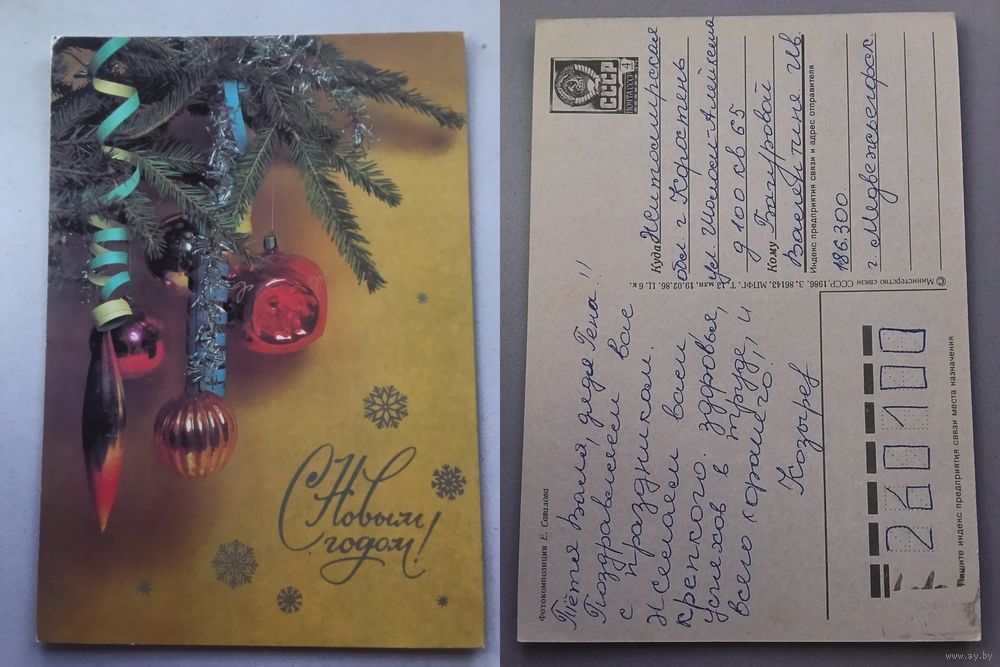 С Новым
годом!
Фотокомпозиция Е. Савалова
Тётя Валя, дядя Гена!!
Поздравляем вас
с праздником.
Желаем вам
крепкого здоровья,
успехов в труде, и
всего хорошего.
Козырев
© Министерство связи СССР, 1986. З. 86143. МПФГ. Т. 13 млн. 19.02.86. Ц. 6 к.
СССР
4
Куда Житомирская
обл. г. Коростень
ул. Шолом-Алейхема
д 100 кв 65
Кому Багуровой
Валентине Ив
Индекс предприятия связи и адрес отправителя
186.300
г. Медвежьегорск.
260100
Пишите индекс предприятия связи места назначения
www.ay.by